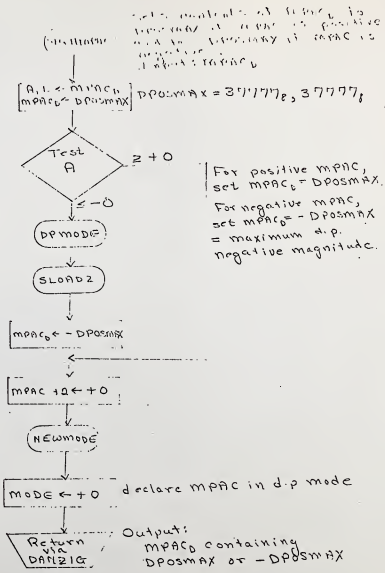 A, L ← MPAC
MPAC_D ← DPOSMAX
DPOSMAX = 37777₈, 37777₈
Test
A
≥ +0
≤ -0
For positive MPAC,
set MPAC_D = DPOSMAX
For negative MPAC,
set MPAC_D = - DPOSMAX
= maximum d.p.
negative magnitude.
DPMODE
SLOAD2
MPAC_D ← - DPOSMAX
MPAC +2 ← +0
NEWMODE
MODE ← +0
declare MPAC in d.p mode
Return
via
DANZIG
Output:
MPAC_D containing
DPOSMAX or -DPOSMAX